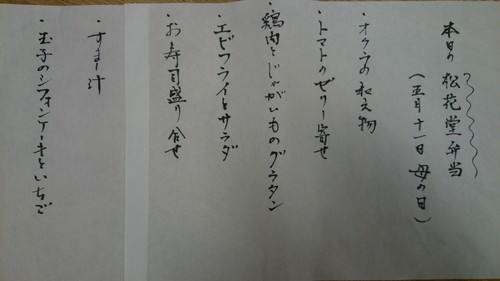 本日の松花堂弁当
(五月十一日 母の日)
・オクラの和え物
・トマトのゼリー寄せ
・鶏肉とじゃがいものグラタン
・エビフライとサラダ
・お寿司盛り合せ
・すまし汁
・玉子のシフォンケーキといちご